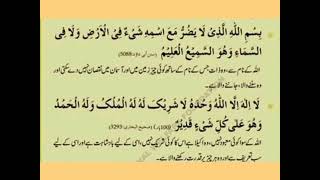 بِسْمِ اللّٰهِ الَّذِیْ لَا یَضُرُّ مَعَ اسْمِهٖ شَیْءٌ فِی الْاَرْضِ وَلَا فِی
السَّمَآءِ وَهُوَ السَّمِیْعُ الْعَلِیْمُ (5088)
اللہ کے نام سے، وہ ذات جس کے نام کے ساتھ کوئی چیز زمین میں اور آسمان میں نقصان نہیں دے سکتی اور
وہ سننے والا، جاننے والا ہے۔
لَا اِلٰهَ اِلَّا اللّٰهُ وَحْدَهٗ لَا شَرِیْكَ لَهٗ لَهُ الْمُلْكُ وَلَهُ الْحَمْدُ
وَهُوَ عَلٰی كُلِّ شَیْءٍ قَدِیْرٌ (صحیح البخاری: 3293)
اللہ کے سوا کوئی معبود نہیں، وہ اکیلا ہے اس کا کوئی شریک نہیں، اسی کے لیے بادشاہت ہے اور اسی کے لیے
سب تعریف ہے اور وہ ہر چیز پر قدرت رکھنے والا ہے۔